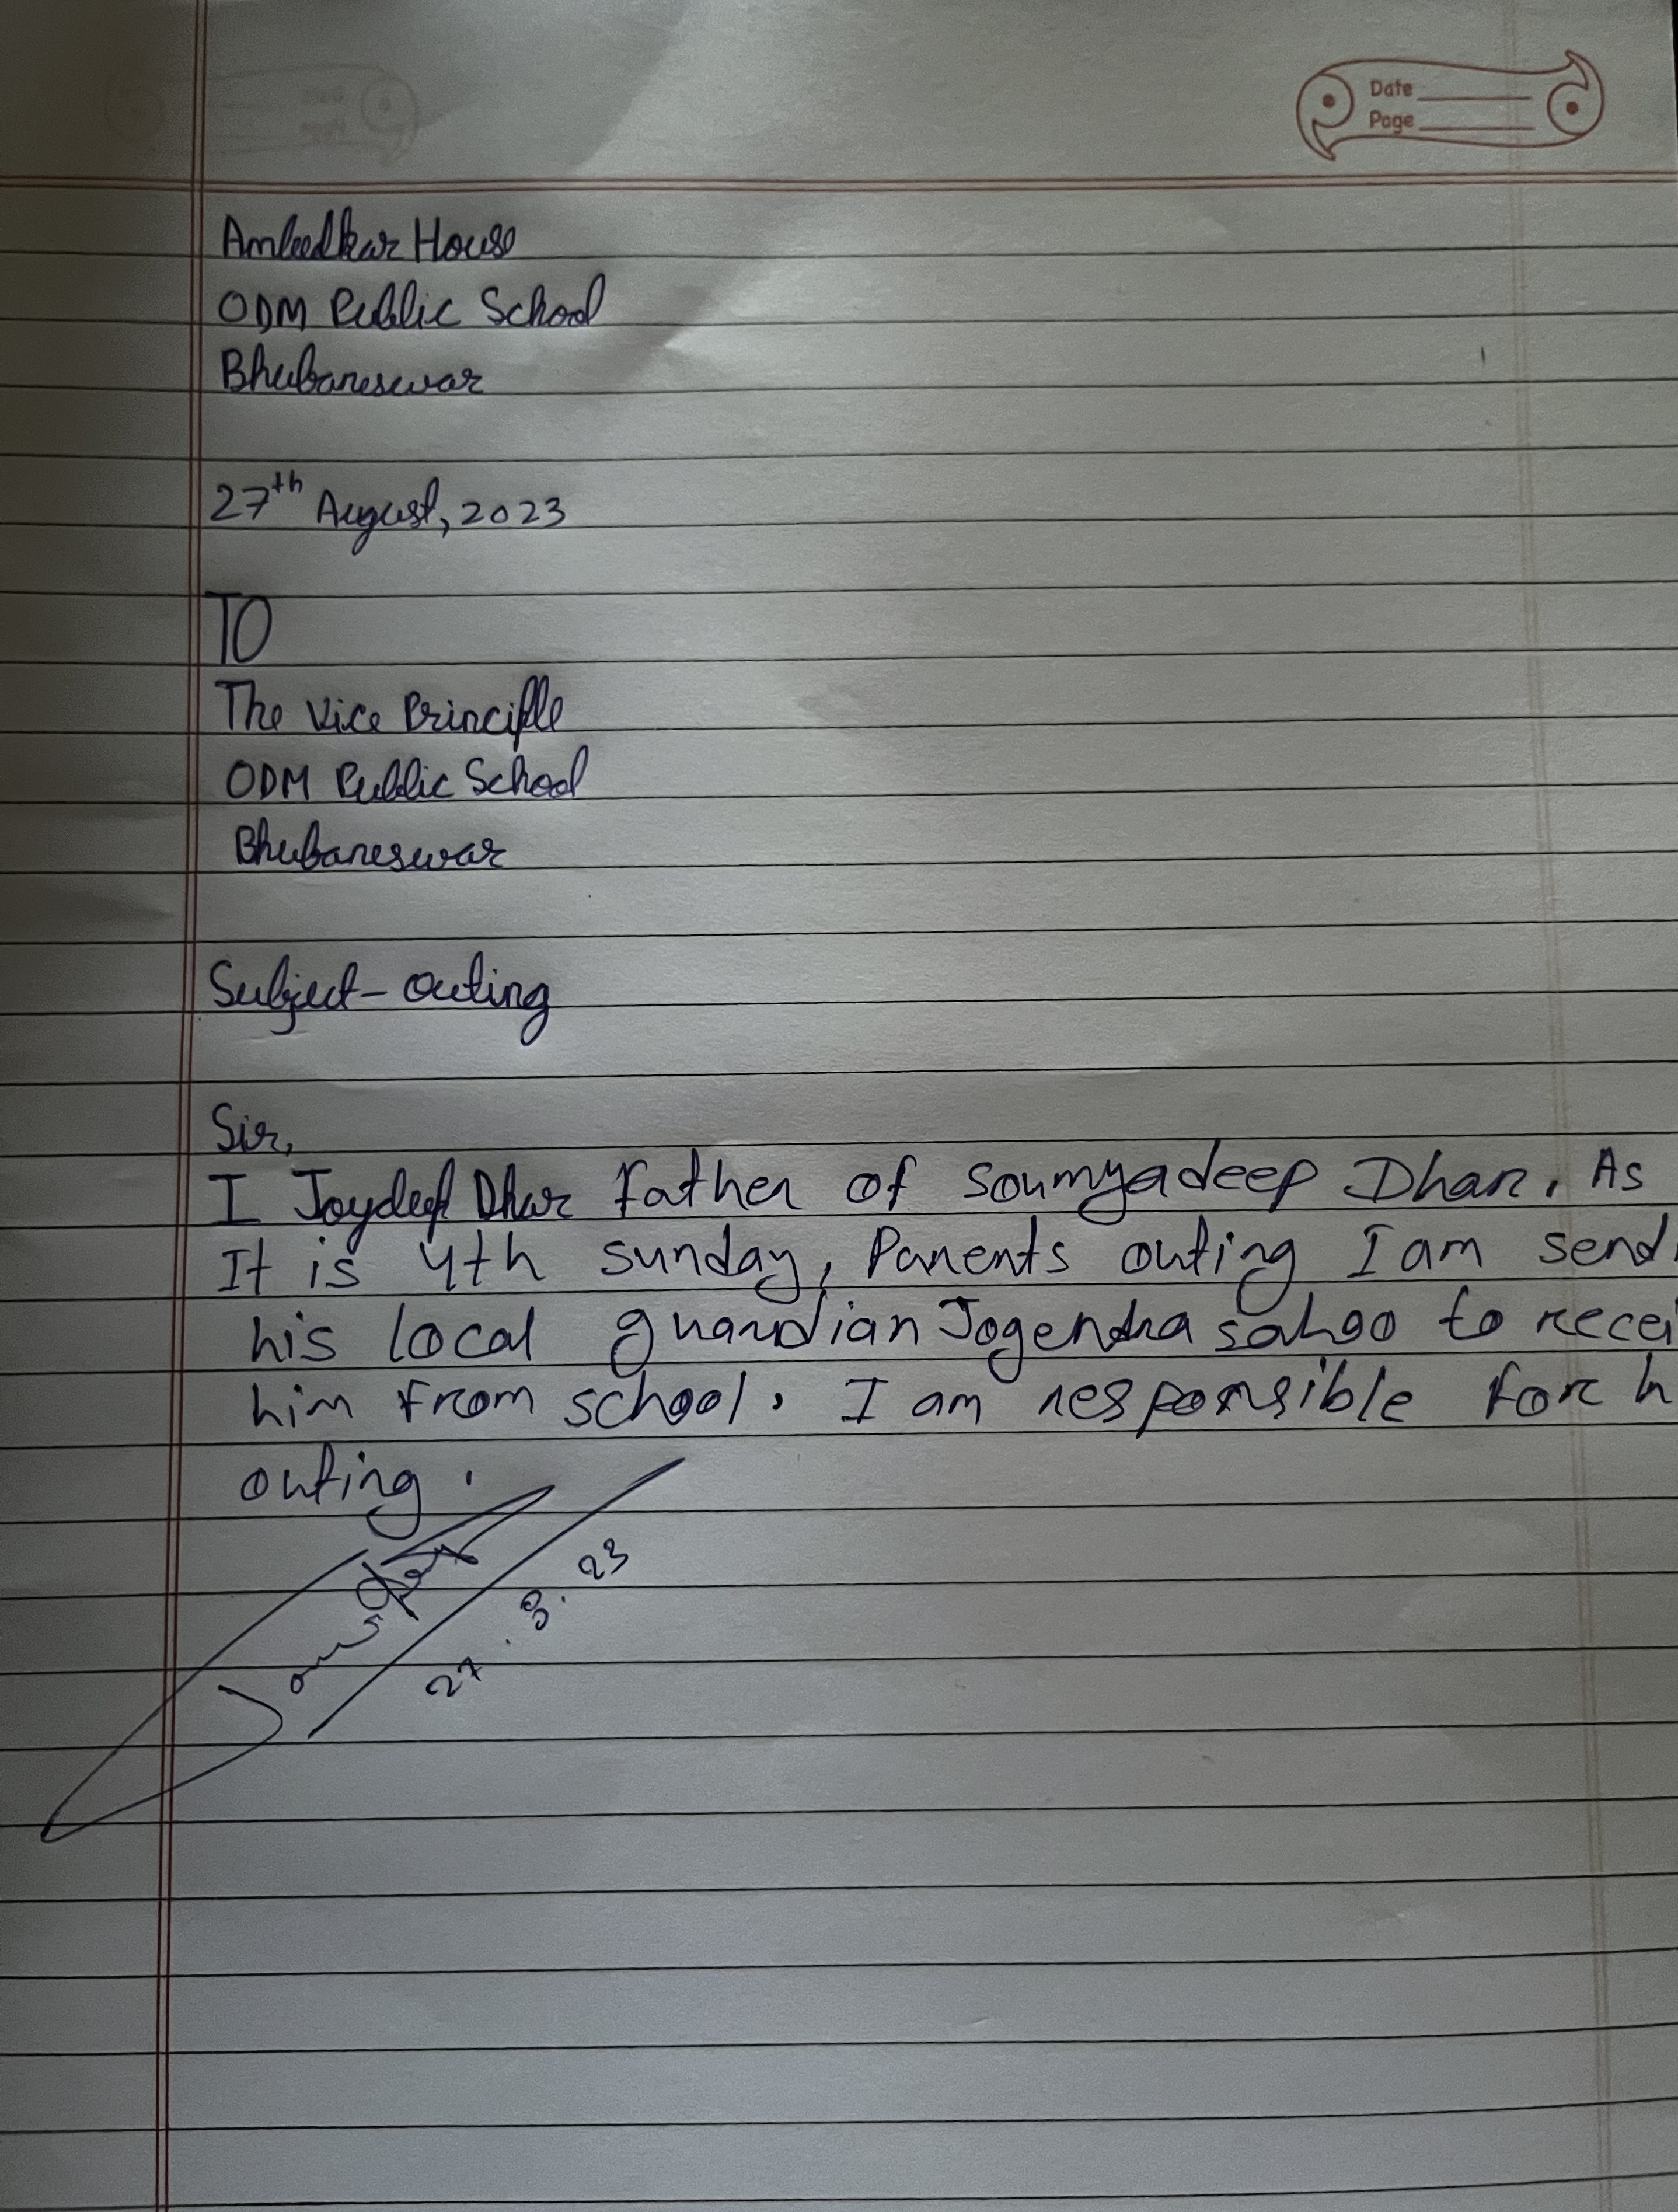 Date
Page
Ambedkar House
ODM Public School
Bhubaneswar
27th August, 2023
TO
The Vice Principle
ODM Public School
Bhubaneswar
Subject - outing
Sir,
I Joydeep Dhar father of Soumyadeep Dhar. As
It is 4th sunday, Parents outing I am send
his local guardian Jogendra sahoo to recei
him from school. I am responsible for h
outing.
27.8.23